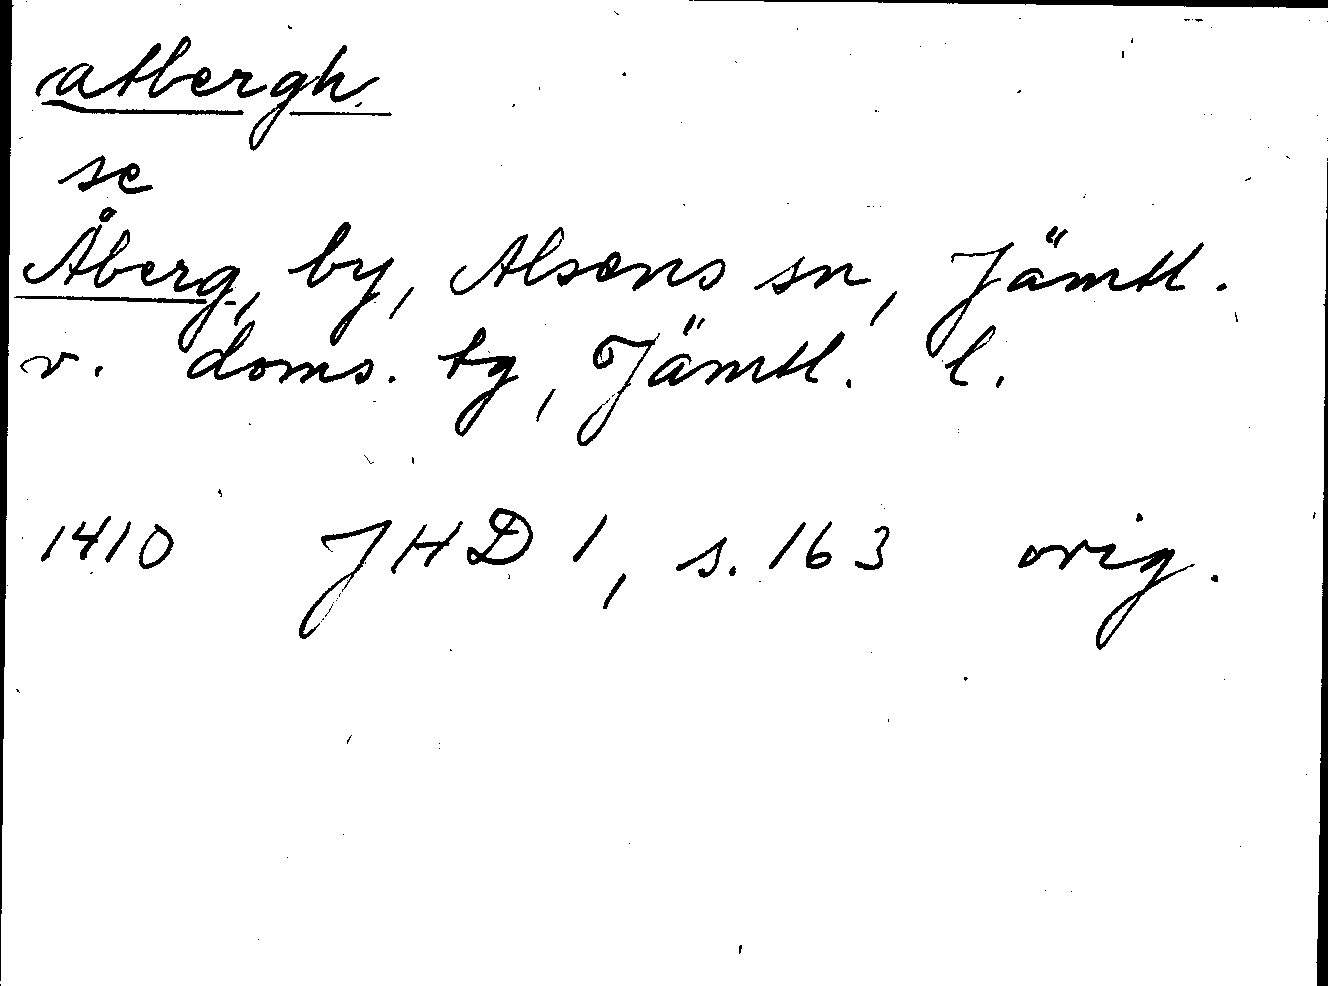 atbergh
se
Åberg, by, Alsens sn, Jämtl.
v. doms. tg, Jämtl. l.
1410 JHD 1, s. 163 orig.